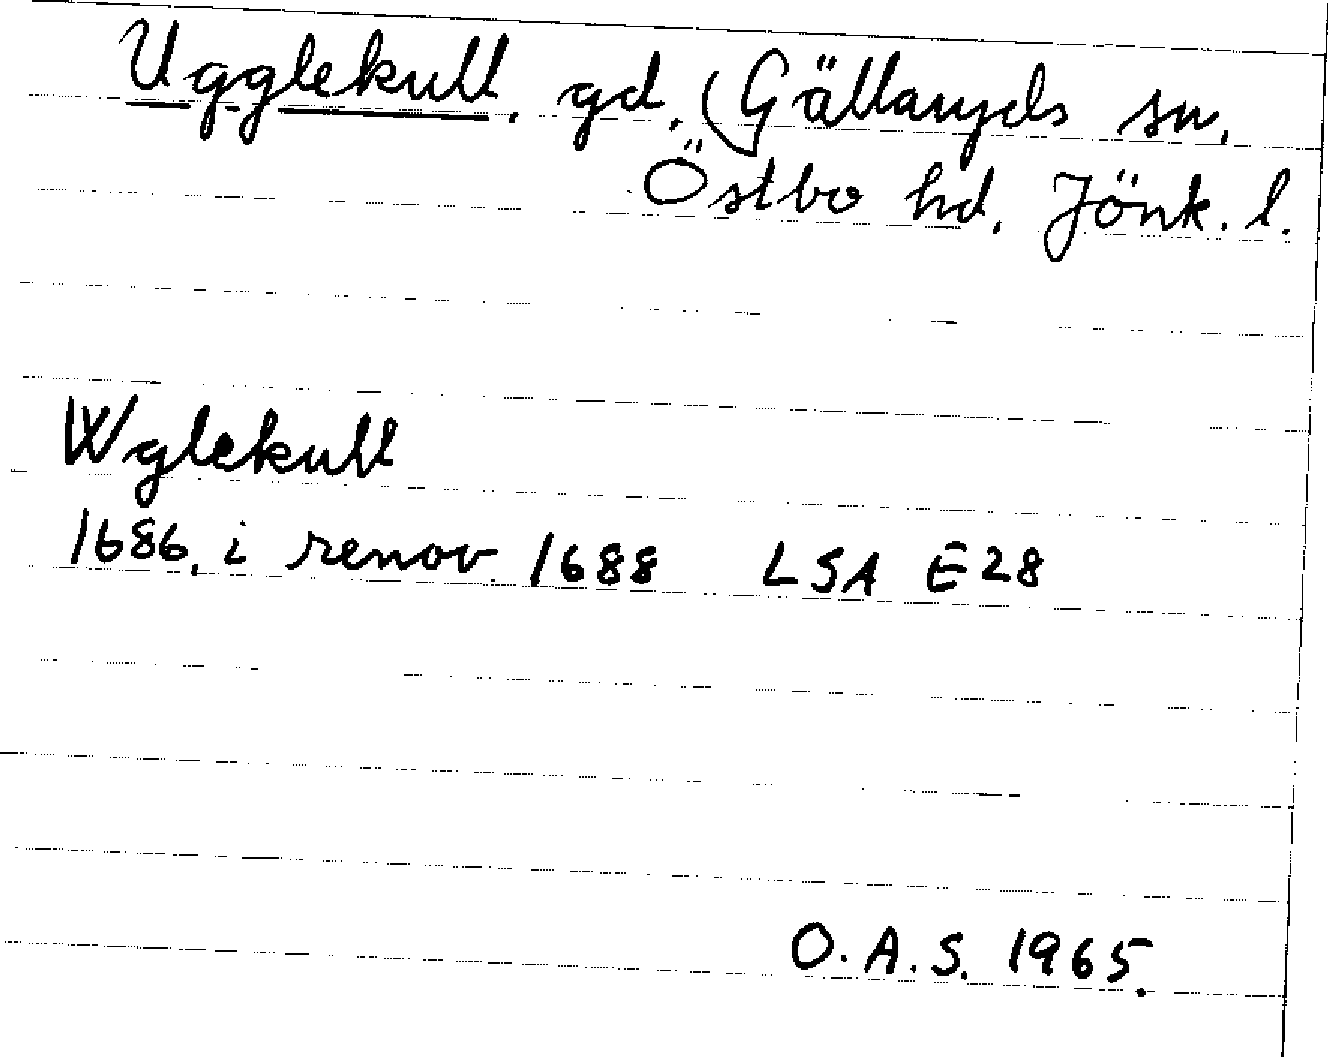 Ugglekull, gd, Gällaryds sn,
Östbo hd, Jönk. l.
Wglekull
1686, i renov. 1688 LSA E28
O.A.S. 1965.